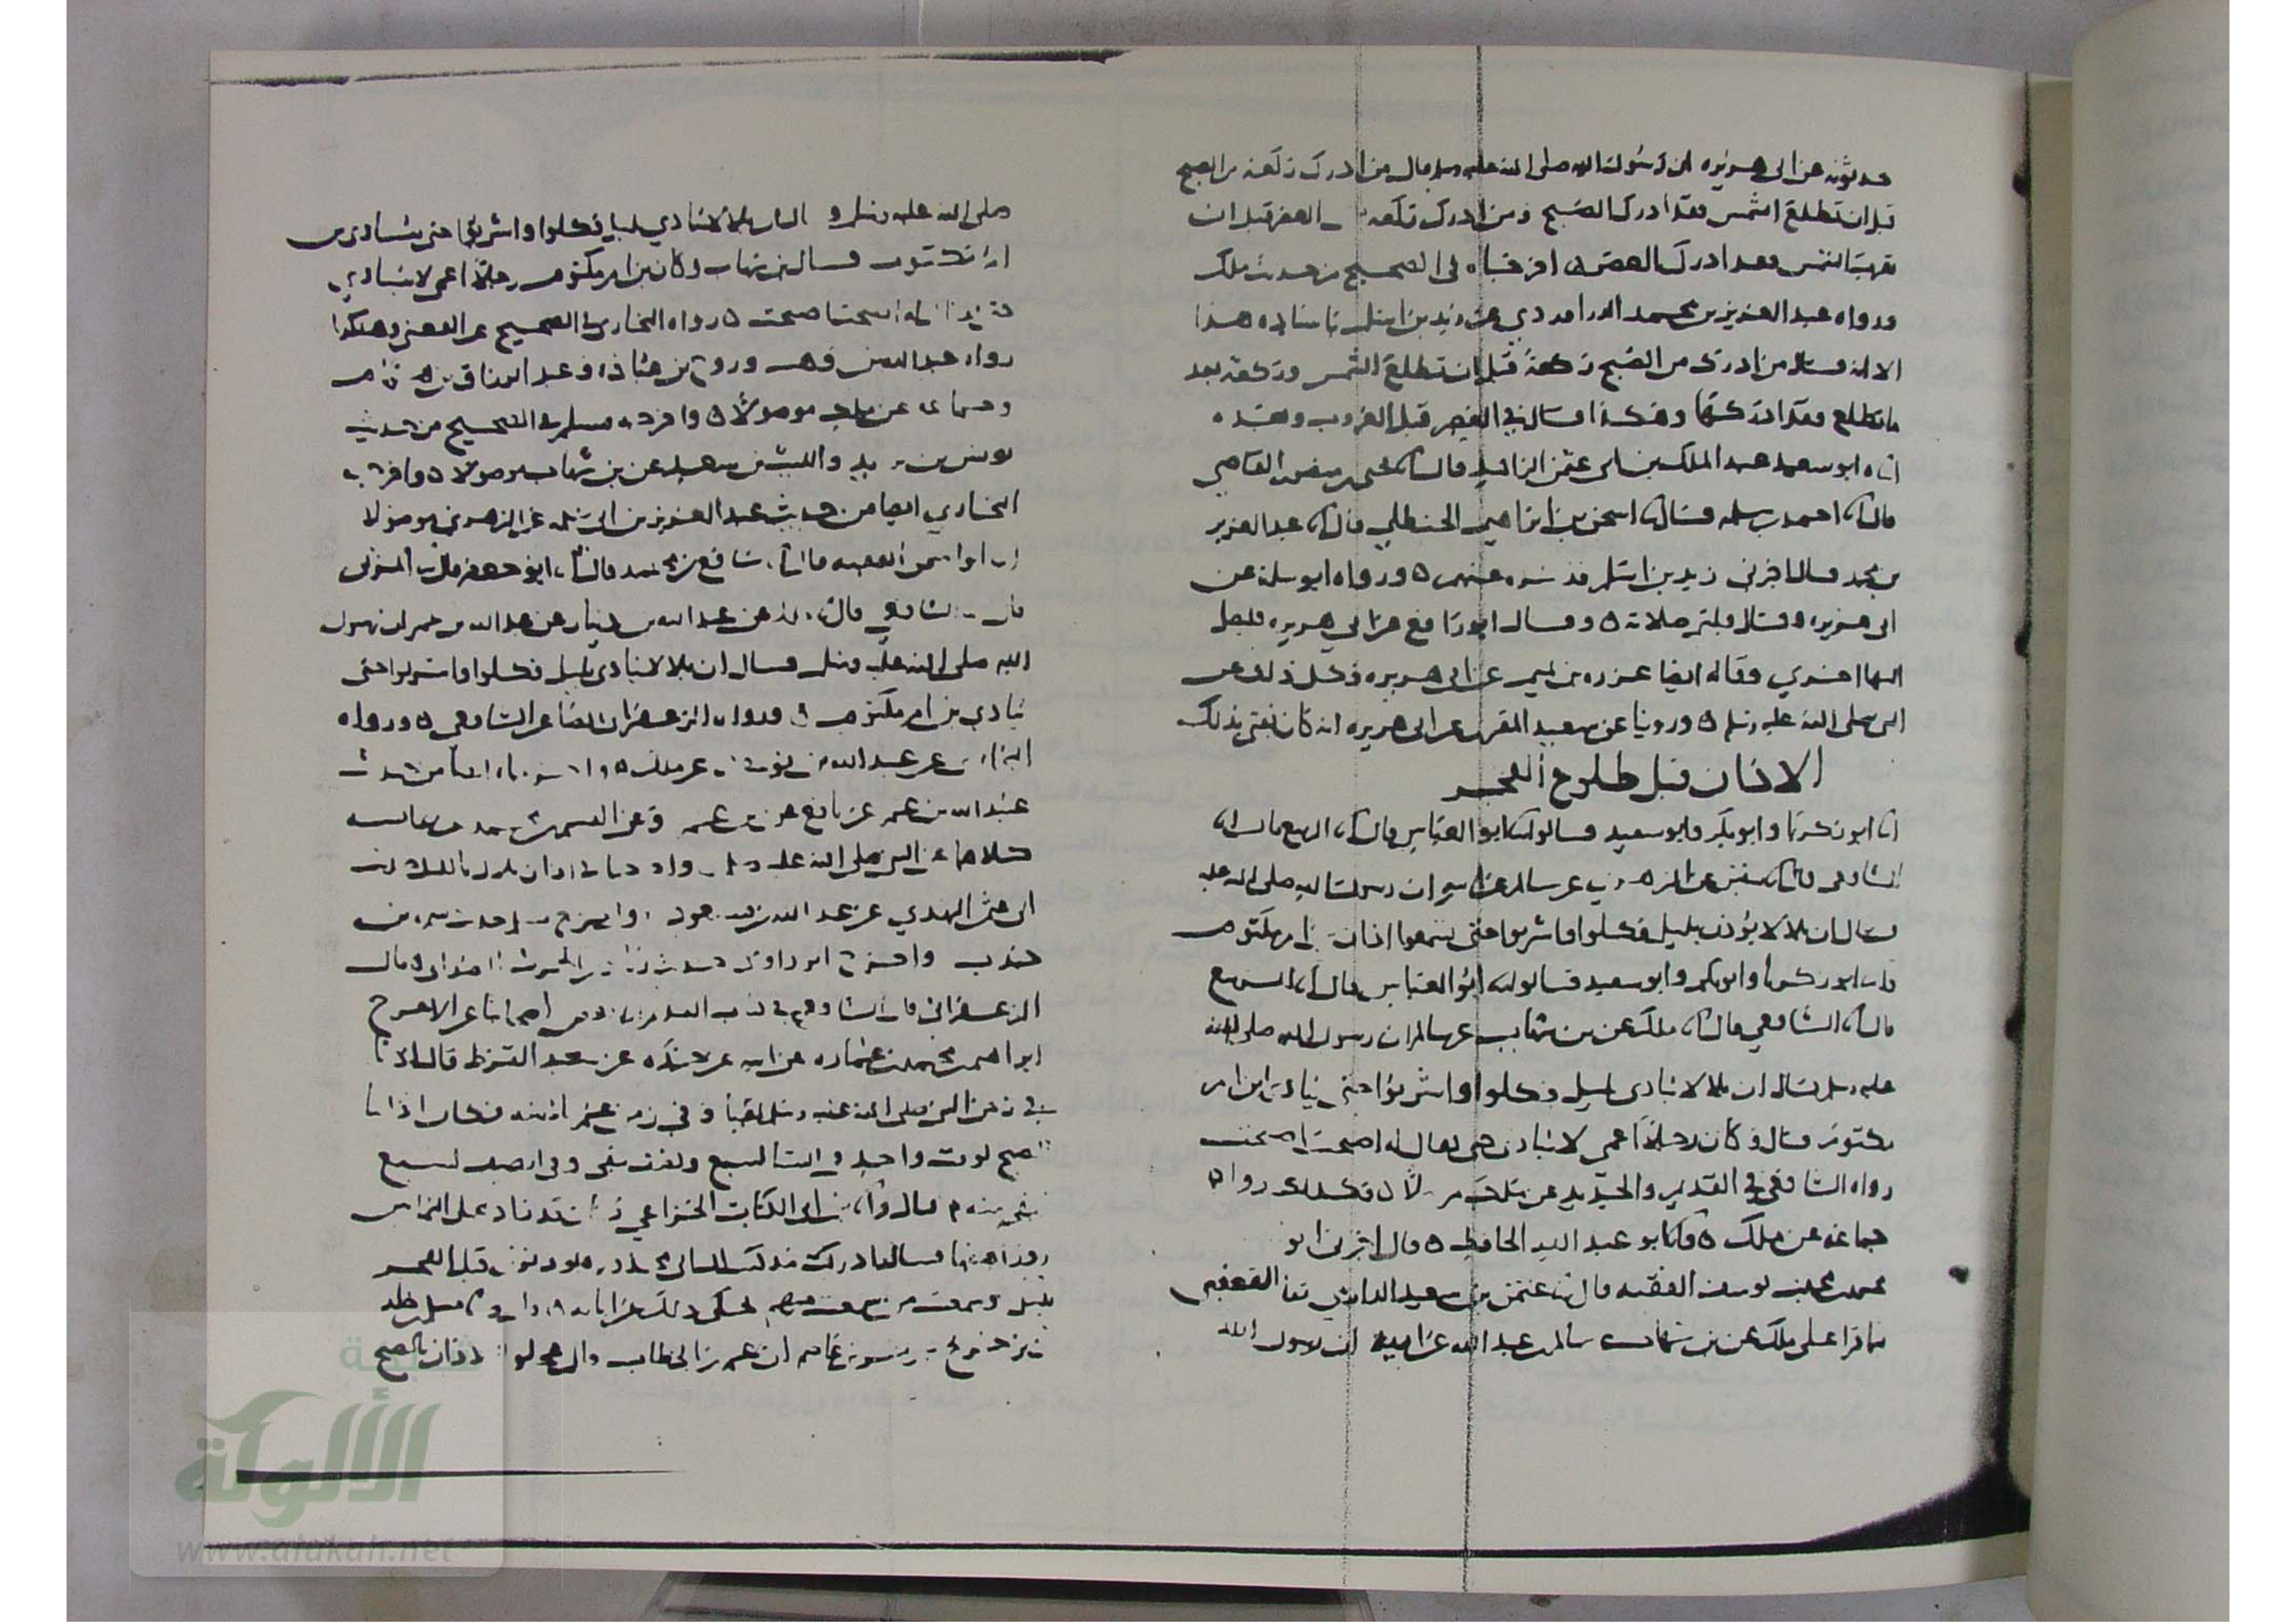 حدثونه عن ابي هريره ان رسول الله صلى الله عليه وسلم قال من ادرك ركعة من الصبح
قبل ان تطلع الشمس فقد ادرك الصبح ومن ادرك ركعة من العصر قبل ان
تغرب الشمس فقد ادرك العصر ٥ اخرجاه في الصحيح من حديث ملك
ورواه عبد العزيز بن محمد الدراوردي عن زيد بن اسلم باسناده هذا
الا انه قال من ادرك من الصبح ركعة قبل ان تطلع الشمس وركعة بعد
ما تطلع فقد ادركها وهكذا قال في العصر قبل الغروب وبعده
اناه ابو سعيد عبد الملك بن ابي عثمن الزاهد قال انا يحيى بن منصور القاضي
قال نا احمد بن سلمه قال نا اسحق بن ابراهيم الحنظلي قال نا عبد العزيز
بن محمد قال اخبرني زيد بن اسلم فذكره عنهم ٥ ورواه ابو سلمة عن
ابي هريره وقال فليتم صلاته ٥ وقال ابو رافع عن ابي هريره فليصل
اليها اخرى وقاله ايضا عزره بن تميم عن ابي هريره وكل ذلك عن
النبي صلى الله عليه وسلم ٥ وروينا عن سعيد المقبري عن ابي هريره انه كان يفتي بذلك
الاذان قبل طلوع الفجر
انا ابو زكريا وابو بكر وابو سعيد قالوا نا ابو العباس قال انا الربيع قال انا
الشافعي قال نا سفين عن الزهري عن سالم عن ابيه ان رسول الله صلى الله عليه
قال ان بلالا يؤذن بليل فكلوا واشربوا حتى تسمعوا اذان ابن ام مكتوم
انا ابو زكريا وابو بكر وابو سعيد قالوا نا ابو العباس قال انا الربيع
قال انا الشافعي قال انا ملك عن بن شهاب عن سالم ان رسول الله صلى الله
عليه وسلم قال ان بلالا ينادي بليل فكلوا واشربوا حتى ينادي ابن ام
مكتوم قال وكان رجلا اعمى لا ينادي حتى يقال له اصبحت اصبحت
رواه الشافعي في القديم والجديد عن ملك مرسلا ٥ وكذلك رواه
جماعة عن ملك ٥ وانا ابو عبد الله الحافظ ٥ قال اخبرني ابو
محمد بن يوسف الفقيه قال نا عثمن بن سعيد الدارمي نا القعنبي
فيما قرا على ملك عن بن شهاب عن سالم بن عبد الله عن ابيه ان رسول الله
صلى الله عليه وسلم قال ان بلالا ينادي بليل فكلوا واشربوا حتى ينادي بن
ام مكتوم قال بن شهاب وكان بن ام مكتوم رجلا اعمى لا ينادي
حتى يقال له اصبحت اصبحت ٥ رواه البخاري في الصحيح عن القعنبي وهكذا
رواه عبد الله بن وهب وروح بن عبادة وعبد الرزاق بن همام
وجماعة عن ملك موصولا ٥ واخرجه مسلم في الصحيح من حديث
يونس بن يزيد والليث بن سعد عن بن شهاب موصولا ٥ واخرجه
البخاري ايضا من حديث عبد العزيز بن ابي سلمه عن الزهري موصولا
انا ابو اسحق الفقيه قال انا شافع بن محمد قال انا ابو جعفر قال نا المزني
قال نا الشافعي قال انا ملك عن عبد الله بن دينار عن عبد الله بن عمر ان رسول
الله صلى الله عليه وسلم قال ان بلالا ينادي بليل فكلوا واشربوا حتى
ينادي بن ام مكتوم ٥ ورواه الزعفراني ايضا عن الشافعي ٥ ورواه
البخاري عن عبد الله بن يوسف عن ملك ٥ واخرجاه ايضا من حديث
عبيد الله بن عمر عن نافع عن بن عمر وعن القسم بن محمد عن عائشه
كلاهما عن النبي صلى الله عليه وسلم واخرجا في اذان بلال بالليل حديث
ابي عثمن النهدي عن عبد الله بن مسعود واخرج مسلم حديث سمره بن
جندب واخرج ابو داود حديث زياد بن الحرث الصدائي ٥ قال
الزعفراني قال الشافعي في كتاب القديم انا بعض اصحابنا عن الاعرج
ابراهيم بن محمد بن عماره عن ابيه عن جده عن سعد القرظ قال اذنا
في زمن النبي صلى الله عليه وسلم بقبا وفي زمن عمر بالمدينه فكان اذاننا
للصبح لوقت واحد في الشتا لسبع ونصف يبقى وفي الصيف لسبع
يبقى منه ٥ قال وانا بن ابي الكنات الخزاعي
قال ادركت مذ كنت
بليل
ان عمر بن الخطاب قال عجلوا الاذان بالصبح
شبكة
الألوكة
www.alukah.net